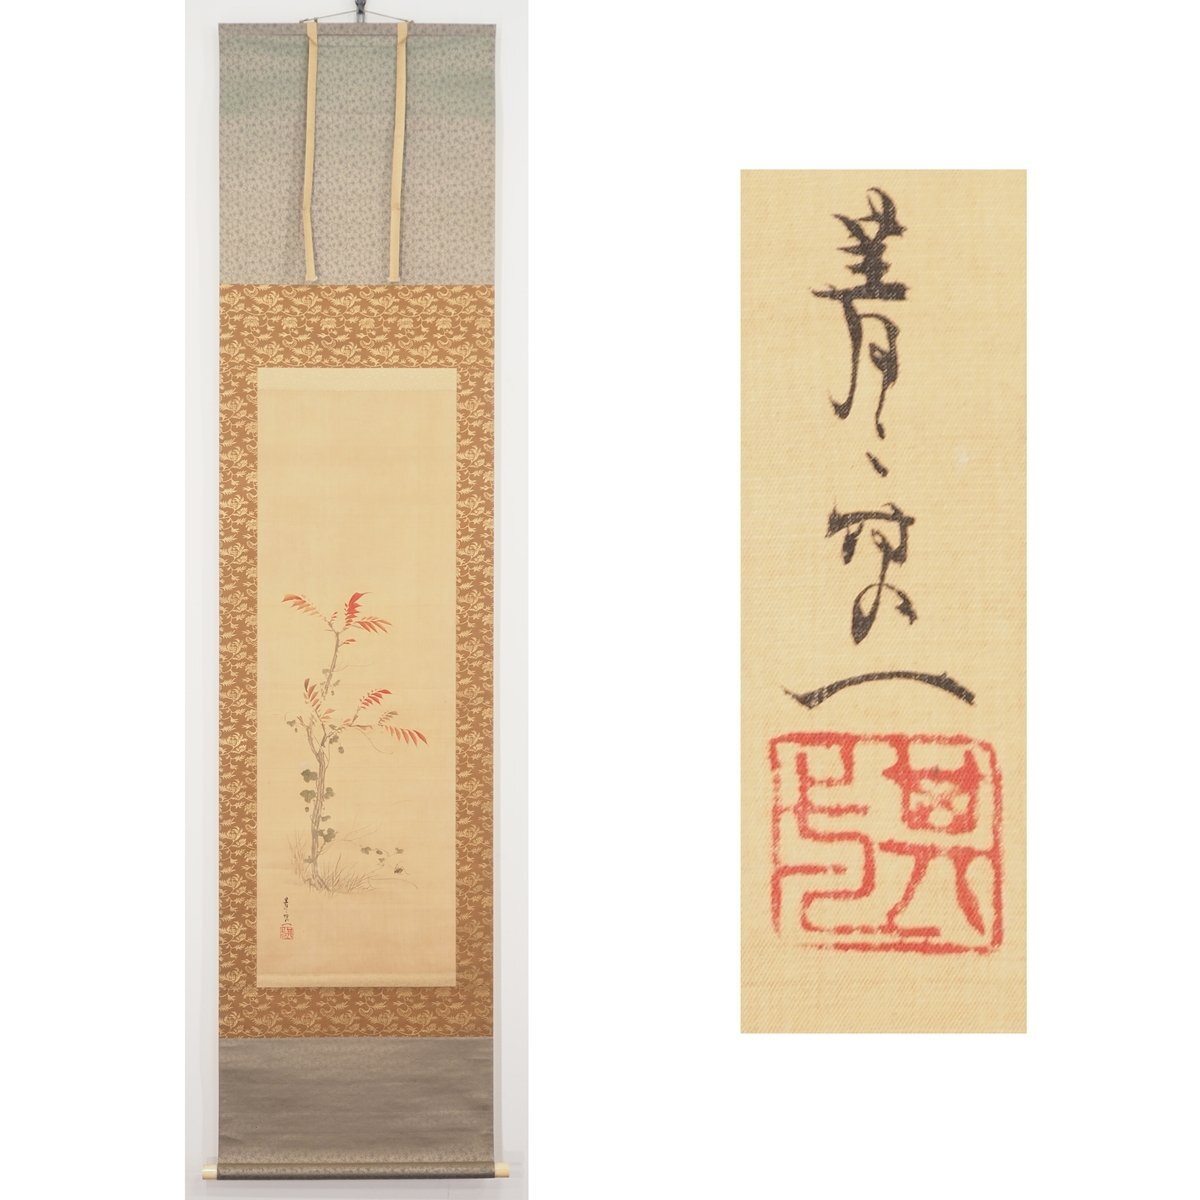 菁々其一